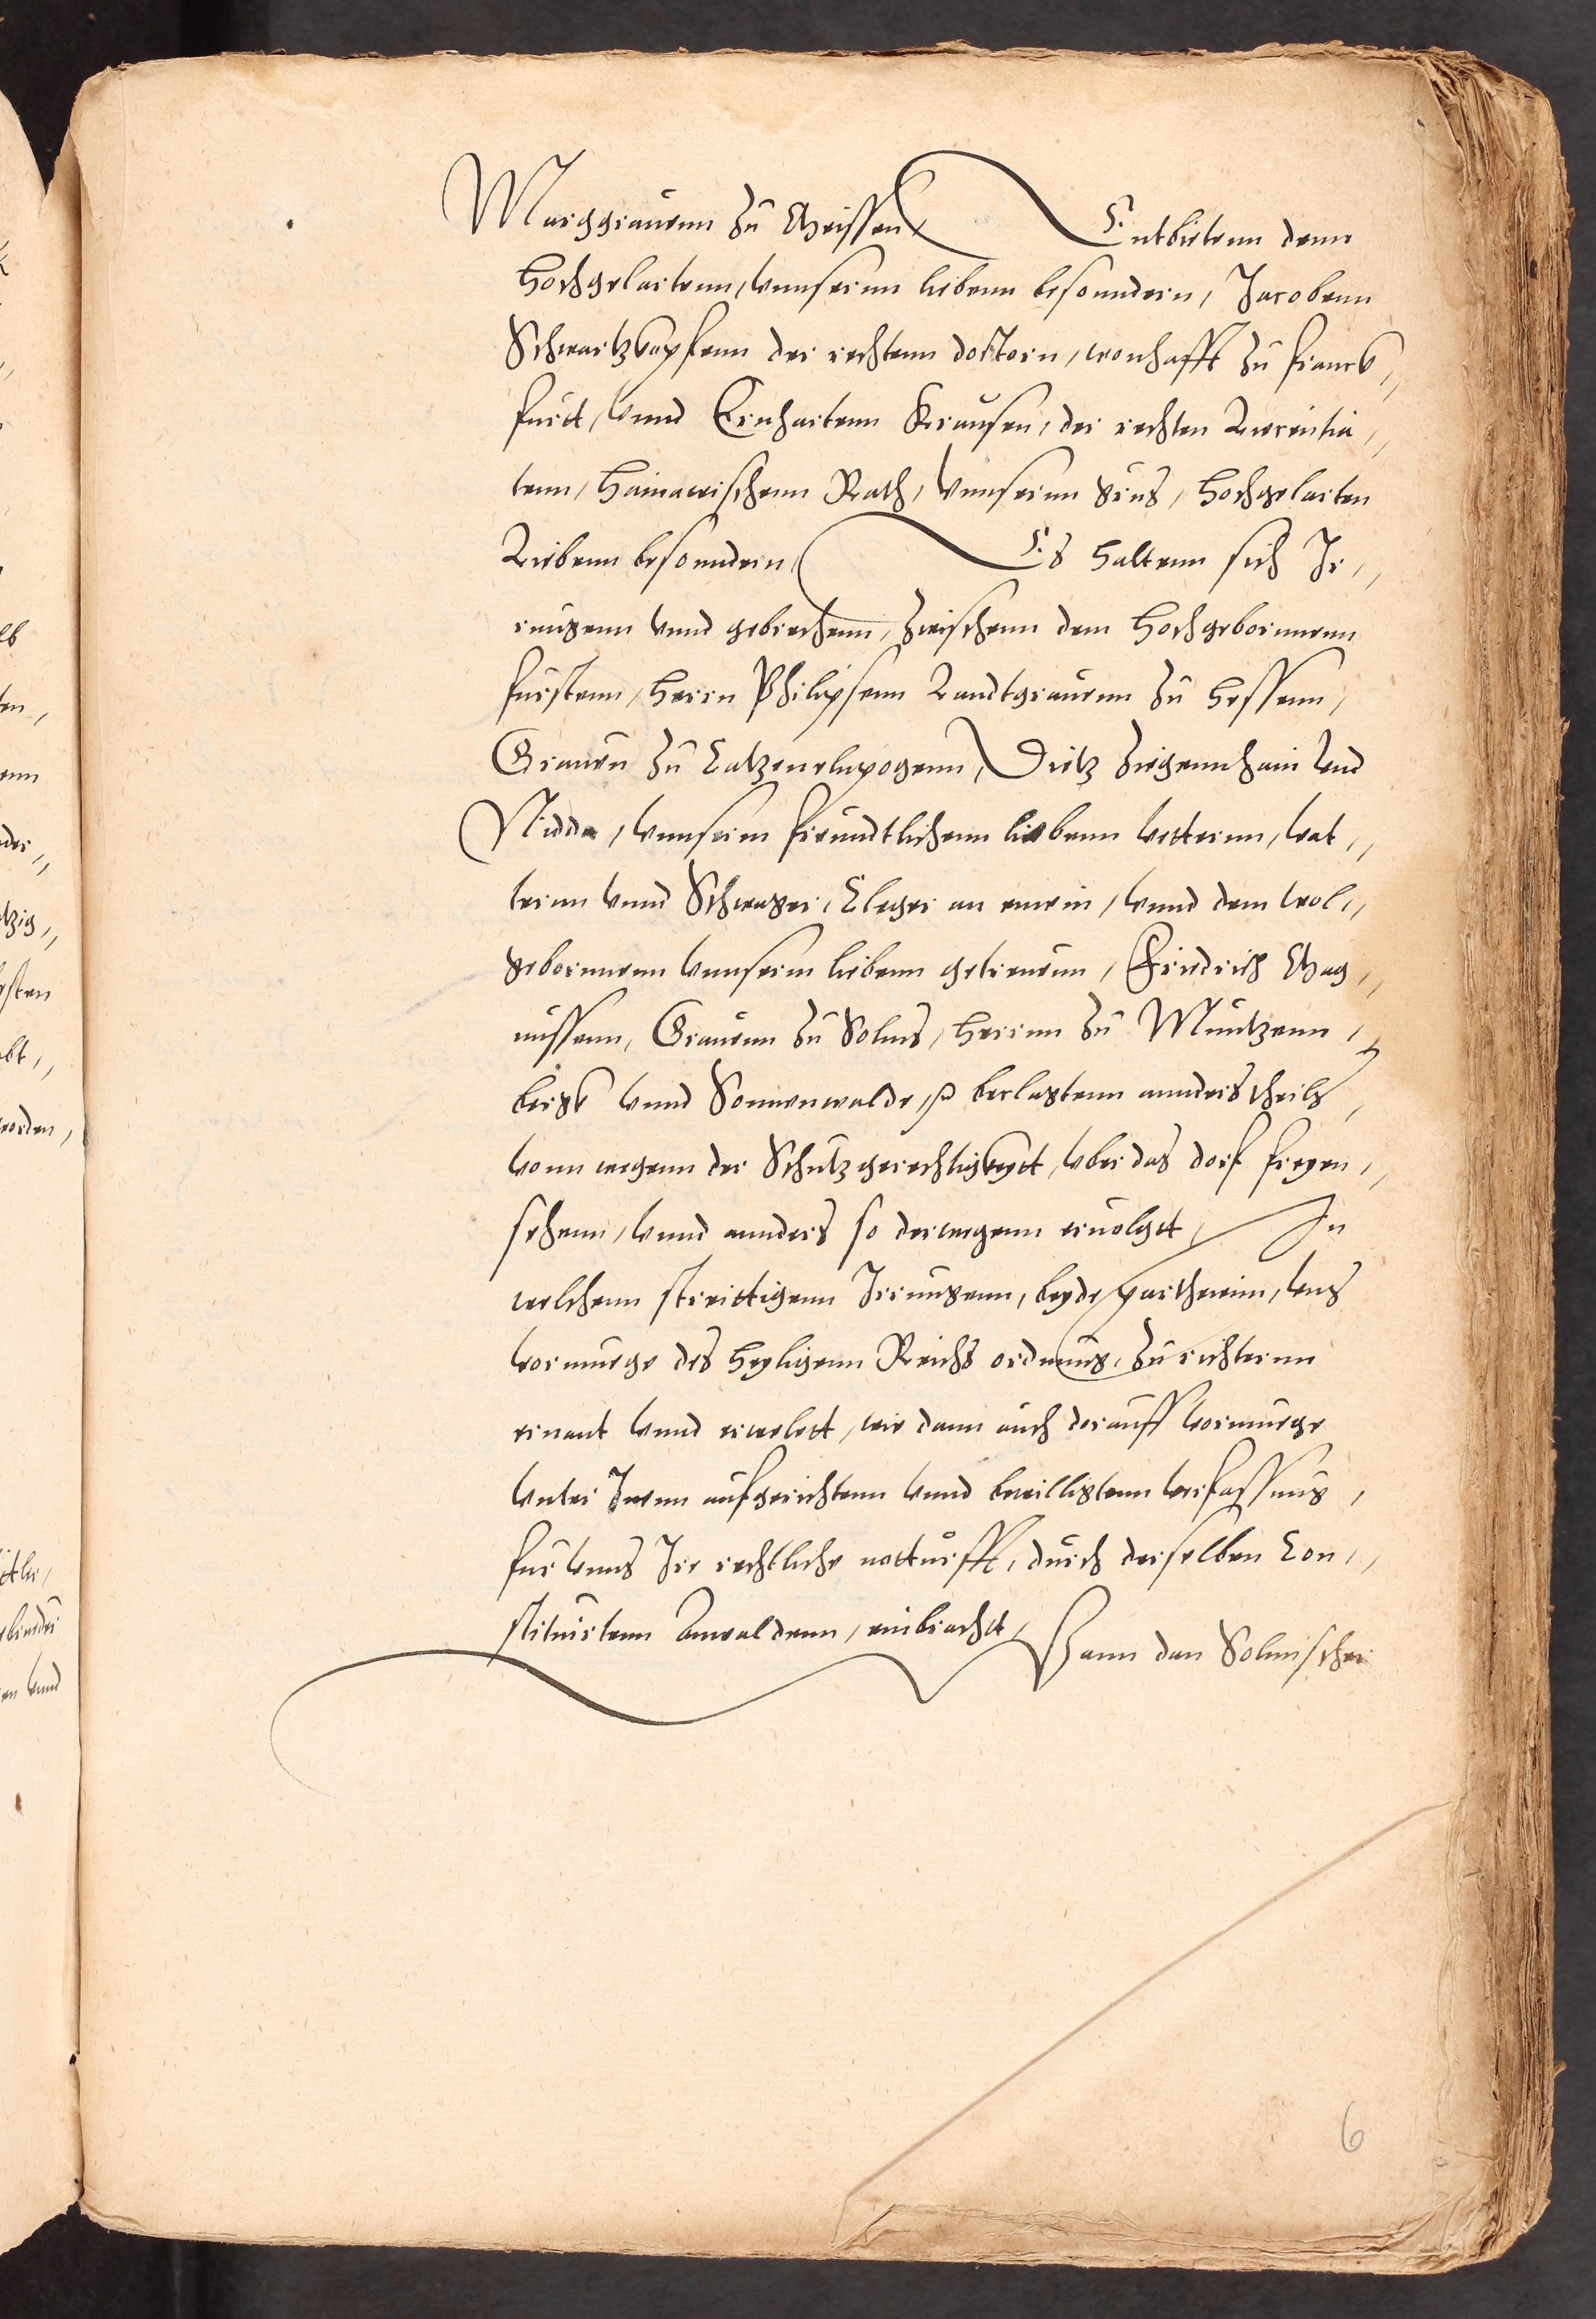 Marggrauenn zu Meissen / Entbietenn denn
hochgelartenn, vnnserrnn liebenn besonndern, Jacobenn
Schwartzkopfenn der rechtenn doctorn, wonhafft zu franck,,
furtt, vnnd Erharten Krausen, der rechten Licentia,,
tenn, Hainawischenn Rath, vnnserrn grus, hochgelarten
Liebenn besonndern / Es haltenn sich Jr,,
rungenn vnnd gebrechenn, zwischenn dem hochgebornnenn
furstenn, herrn Philipsenn Landtgrauenn zu hessenn,
Grauen zu Catzenelnpogenn, Dietz Ziegennhain vnd
Nidda, vnnserm freundtlichenn liebenn vetternn, vat,,
ternn vnnd Schwager, Cleger an einem, vnnd dem wol,,
gebornnenn vnnserm liebenn getrewenn, Friedrich Mag,,
nussenn, Grauenn zu Solms, herrnn zu Müntzenn,,
bergk vnnd Sonnenwalde, beclagtenn annders theils,
vonn wegenn der Schutzgerechtigkeytt, vber das dorf freyen,,
sehenn, vnnd annders so derwegenn ervolgtt, In
welchenn streittigenn Jrrungenn, beyde parthenen, vns
vormuege des heyligenn Reichs ordnung, zu richternn
ernant vnnd erweltt, wie dann auch dorauff vormuege
vnter Jnenn aufgerichtenn vnnd bewilligtenn verfassung,
fur vnns Jre rechtliche notturfft, durch derselben Con,,
stituirtenn Anwaldenn, einbrachtt, Wann dan Solmischer
6